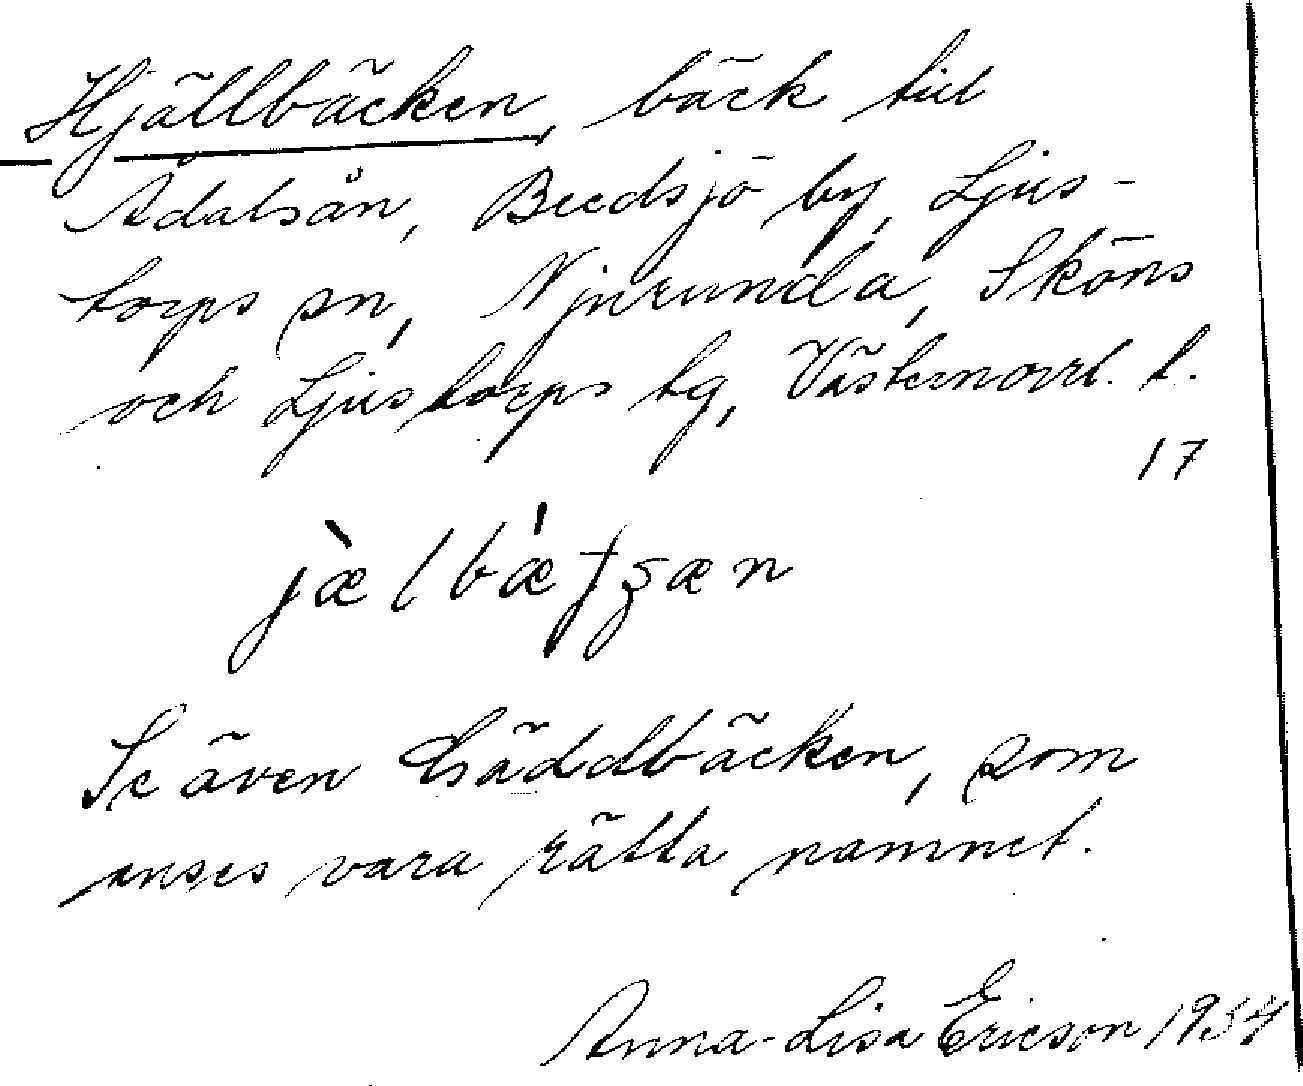 Hjällbäcken, bäck till
Ådalsån, Bredsjö by, Ljus-
torps sn, Njurunda, Sköns
och Ljustorps tg, Västernorrl. l.
17
jæ̀lbǽ
Se även Gäddbäcken, som
anses vara rätta namnet.
Anna-Lisa Ericson 1934